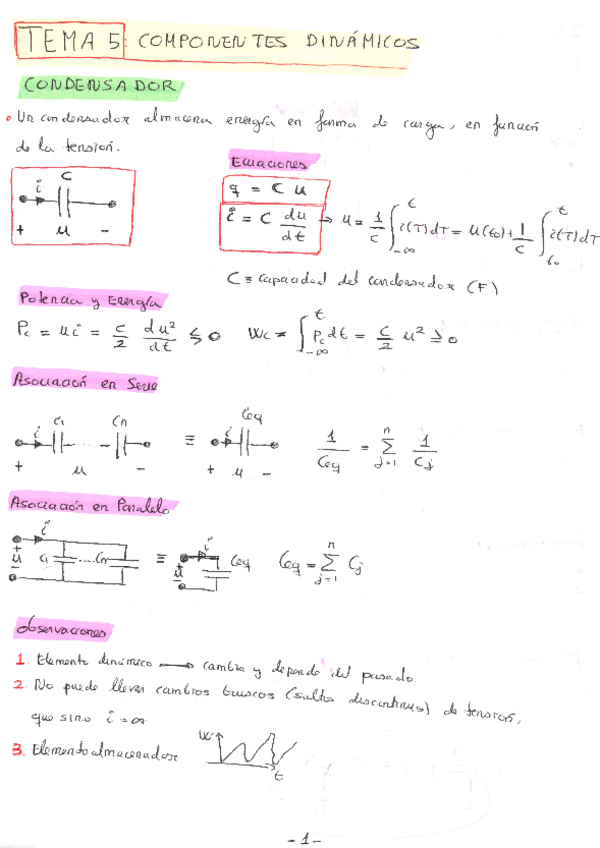 TEMA 5: COMPONENTES DINÁMICOS
CONDENSADOR
• Un condensador almacena energía en forma de carga, en función
de la tensión.
Ecuaciones
C
i
+ u -
q = C u
i = C du/dt → u = 1/C ∫_{-∞}^{t} i(τ)dτ = u(t₀) + 1/C ∫_{t₀}^{t} i(τ)dτ
C ≡ capacidad del condensador (F)
Potencia y Energía
Pc = ui = C/2 du²/dt ≶ 0 Wc = ∫_{-∞}^{t} Pc dt = C/2 u² ≥ 0
Asociación en Serie
i C₁ ... Cn ≡ i Ceq 1/Ceq = Σ_{j=1}^{n} 1/Cj
+ u - + u -
Asociación en Paralelo
i + u - C₁ .... Cn ≡ i + u - Ceq Ceq = Σ_{j=1}^{n} Cj
Observaciones
1. Elemento dinámico → cambia y depende del pasado.
2. No puede llevar cambios bruscos (saltos discontinuos) de tensión,
que sino i = ∞
3. Elemento almacenador
Wc
t
- 1 -